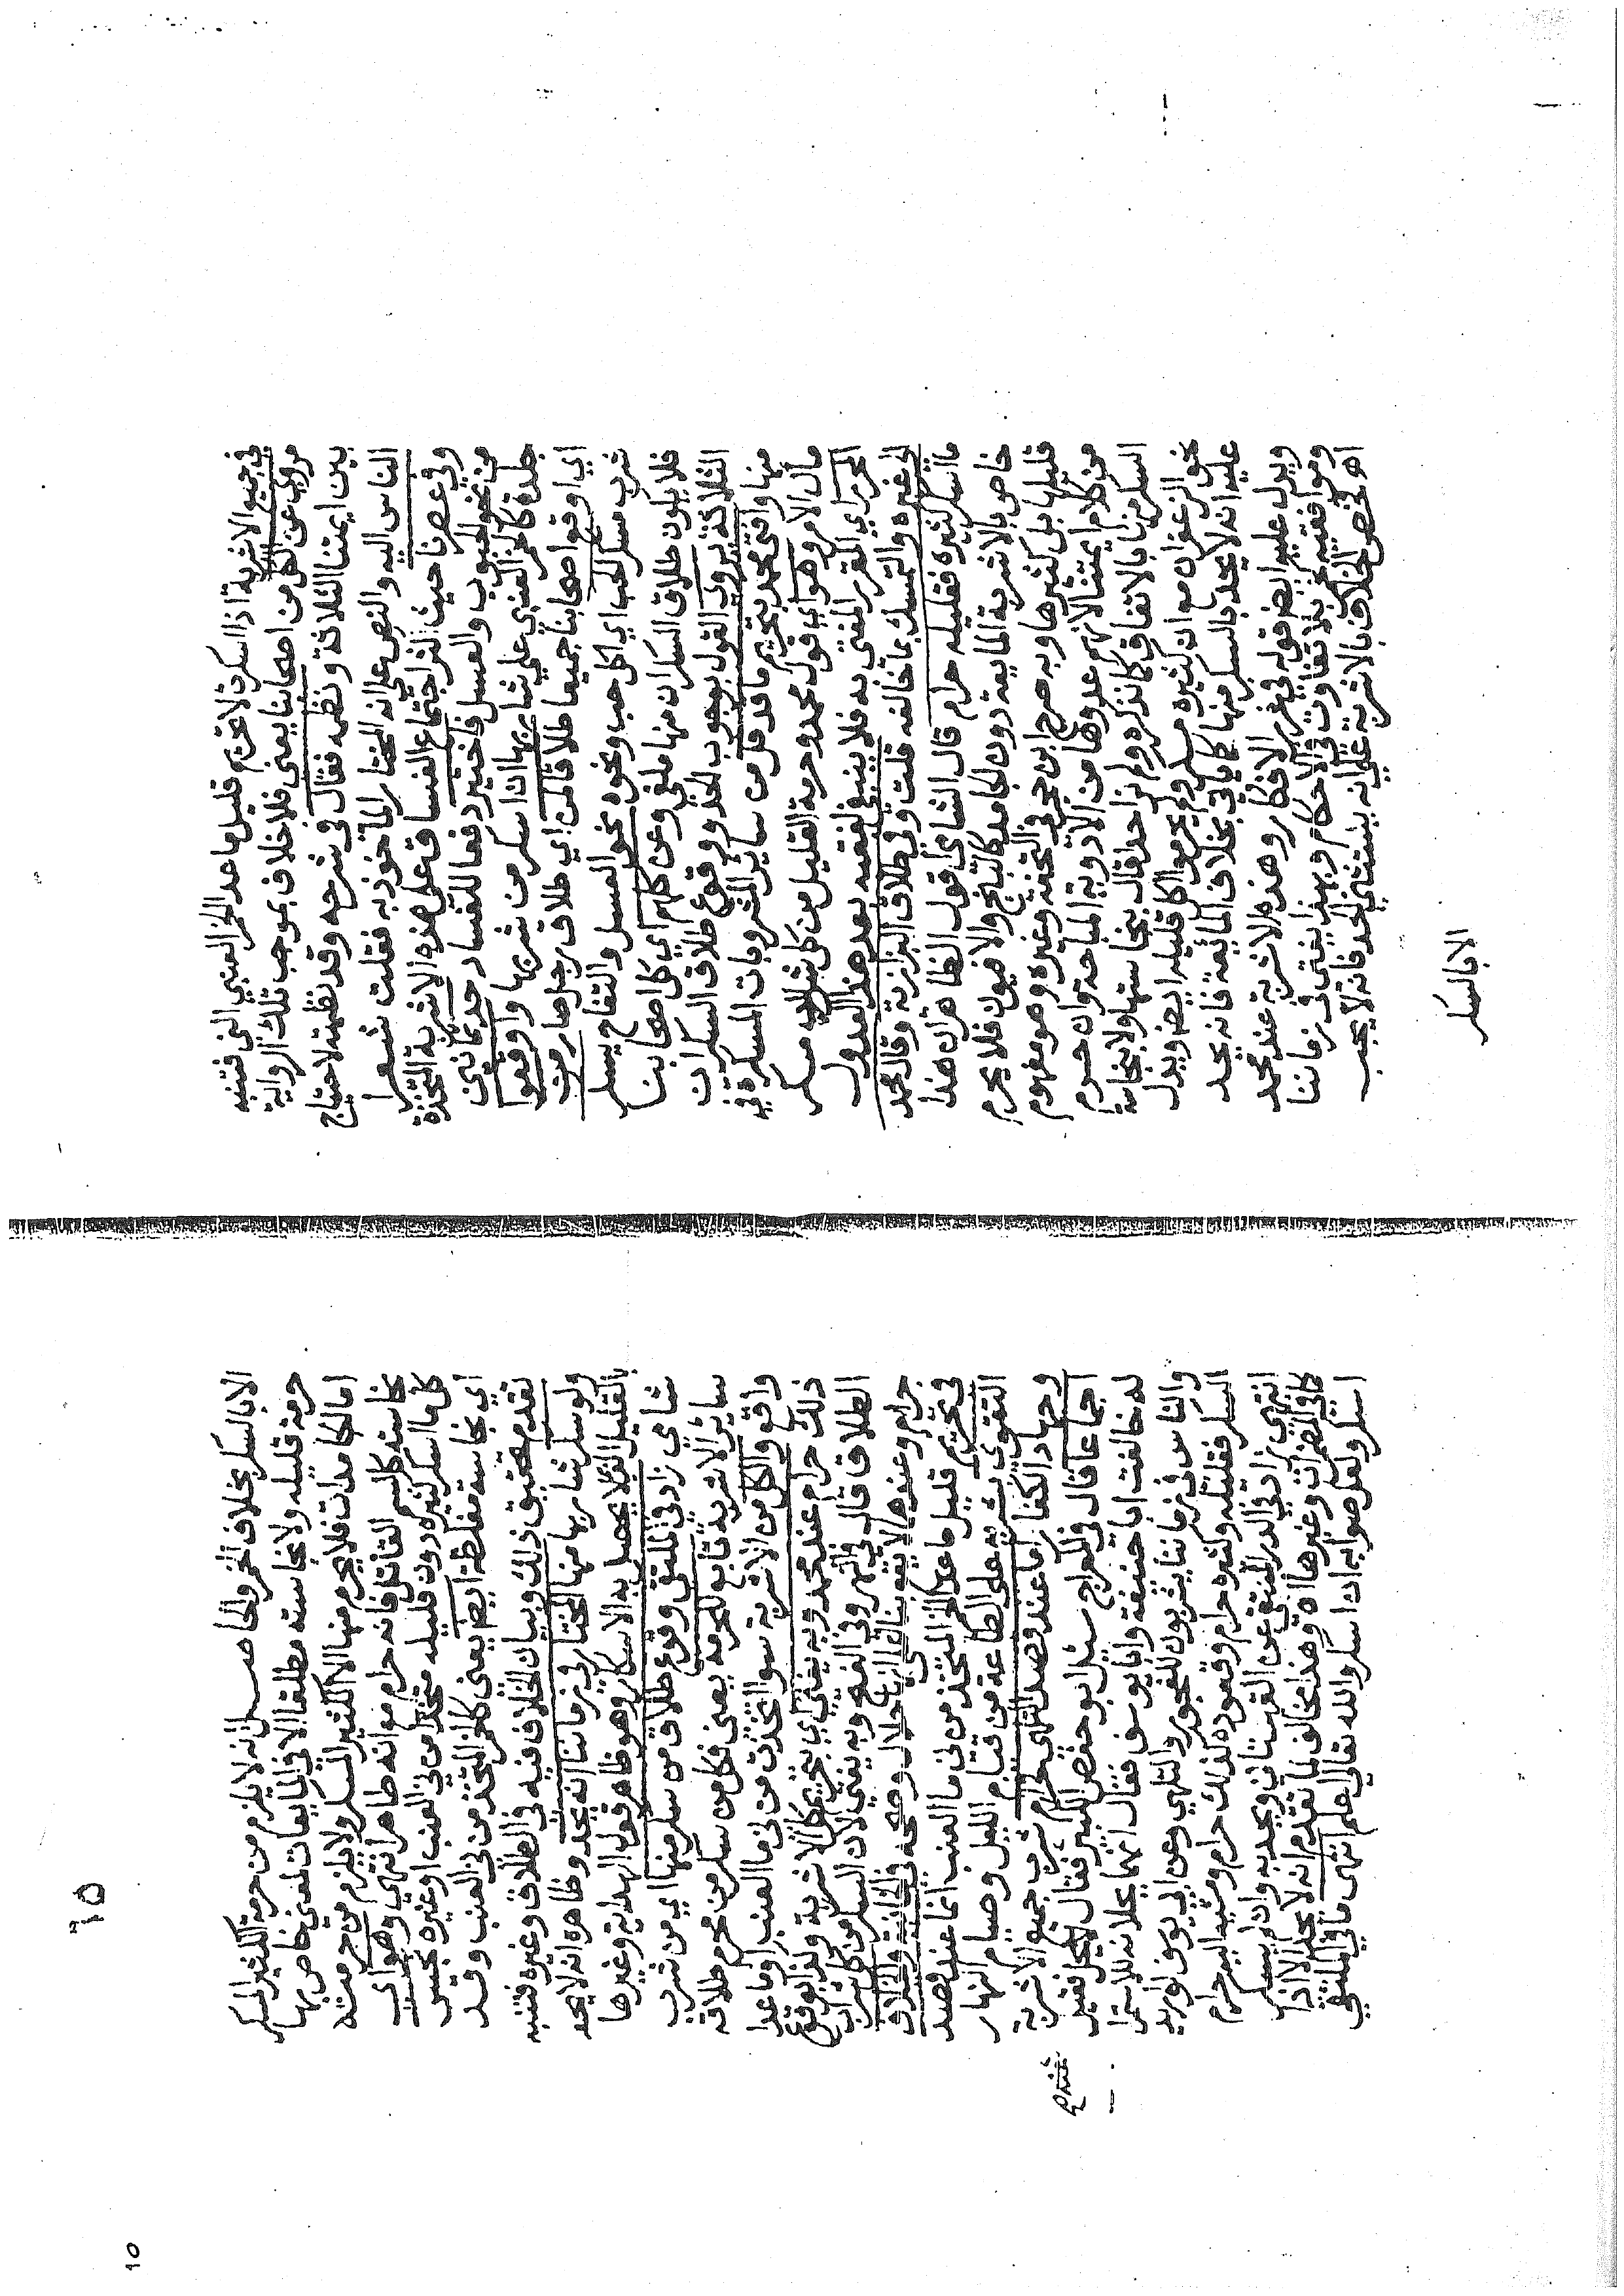 في جميع الاشربة اذا اسكرت لا تحريم قليل ما عدا الخمر العنبي الني فتنبه
مروي عن الكل من اصحابنا يعني فلا خلاف بموجب تلك الرواية
بين ايمتنا الثلاثة ونظمه فقال في شرحه وقد نظمته لاحتياج
الناس اليه والنص على انه المختار المأخوذ به فقلت شعرا
وفي عصرنا حيث اثر اجتماع الفساق على هذه الاشربة المتخذة
من نحو الحبوب والعسل فاختير دفعا للفساد حد ثمانين
جلدة كالخمر العنبي على شاربها ان اسكر من شربها واوقعوا
اي اوقع اصحابنا جميعا طلاقا لمن اي طلاق رجل صار من
شرب مسكر الحب اي اكل حب ونحوه نحو العسل والتفاح يسكر
فلا يكون طلاق السكران منها ملغي وعن كلهم اي كل اصحابنا
الثلاثة يروى القول بوجوب الحد ووقوع طلاق السكران
منها وافتى محمد بتحريم ما قد قل من ساير المشروبات المسكرة في
مآل الامر وهو اي قول محمد وحرمة القليل من كل شراب مسكر
المحرر اي المقرر المفتى به فلا ينبغي لفقيه بعد هذا العدول
الى غيره والتمسك بما خالفه قلت وفي طلاق البزازية وقال محمد
ما اسكر كثيره فقليله حرام قال الشامي اقول الظاهر ان هذا
خاص بالاشربة المايعة دون الجامد كالبنج والافيون فلا يحرم
قليلها بل كثيرها وبه صرح ابن حجر في التحفة وغيره وهو مفهوم
من كلام ايمتنا لانهم عدوها من الادوية المباحة وان حرم
السكر منها بالاتفاق كما نذكره ولم نر احدا قال بنجاستها ولا بنجاسة
نحو الزعفران مع ان كثيره مسكر ولم يحرموا اكل قليله ايضا ويدل
عليه انه لا يحد بالسكر منها كما ياتي بخلاف المائعة فانه يحد
ويدل عليه ايضا قوله في غرر الافكار وهذه الاشربة عند محمد
وموافقيه كخمر بلا تفاوت في الاحكام وبهذا يفتى في زماننا
اهـ فخص الخلاف بالاشربة على انه يستثنى الحد فانه لا يجب
الا بالسكر
١٥
الا بالسكر بخلاف الخمر والحاصل انه لا يلزم من حرمة الكثير المسكر
حرمة قليله ولا نجاسته مطلقا الا في المايعات لمعنى خاص بها
اما الجامدات فلا يحرم منها الا الكثير المسكر ولا يلزم من حرمته
نجاسته كالسم القاتل فانه حرام مع انه طاهر انتهى وهو اي
كل ما اسكر كثيره دون قليله متخذا من ني العنب او غيره نجس
اي نجاسته مغلظة ايضا يعني كالخمر المتخذ من ني العنب وقد
تقدم تحقيق ذلك وبيان الخلاف فيه في الطلاق وغيره فتنبه
ولو سكر شاربها منها المختار في زماننا انه يحد وظاهره انه لا يحد
بالقليل الذي لا يحصل به الاسكار وهو ظاهر قول الهداية وغيرها
شامي زاد في الملتقى ووقوع طلاق من سكر منها اي من شرب
ساير الاشربة تابع للحرمة يعني فكل من سكر من محرم طلاقه
واقع والكل من الاشربة سوا اتخذت من ني ما العنب او ما عدا
ذلك حرام عند محمد وبه يفتى اي بتحريم كل الاشربة ولذا بوقوع
الطلاق قال في النهر وفي الفتح وبه يفتى لان السكر من كل شراب
حرام وعندهما لا يقع بناء على انه حلال وصححه في الخانية والخلاف
في تحريم قليل ما عدا الخمر المتخذ من ني ما العنب انما عند قصد
التقوى بشربه على الطاعة من قيام الليل وصيام النهار
وجهاد الكفار اما عند قصد التلهي فحرام شرب جميع الاشربة
اجماعا قال في المعراج سئل ابو حفص الكبير فقال لا يحل فقيل
له خالفت ابا حنيفة وابا يوسف فقال انهما يحلانه للاستمرا
والناس في زماننا يشربون للفجور والتلهي وعن ابي يوسف لو اريد
السكر فقليله وكثيره حرام وقعوده لذلك حرام ومشيه اليه حرام
انتهى زاد في الدر المنتقى عن القهستاني ويحد به وان لم يسكر
كما في المضمرات وغيرها اهـ وهذا مخالف لما تقدم انه لا يحد الا اذا
اسكر ولعل صوابه اذا سكر والله تعالى اعلم انتهى ما في الملتقى